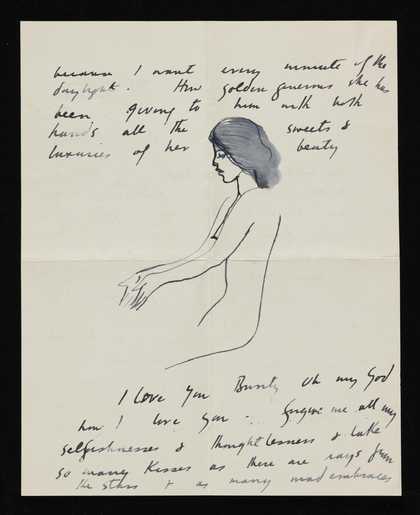 because I want every minute of the
daylight. How golden generous she has
been giving to him with both
hands all the sweets &
luxuries of her beauty
I love you Bunty Oh my God
how I love you. forgive me all my
selfishnesses & thoughtlessness & take
so many kisses as there are rays from
the stars & as many mad embraces